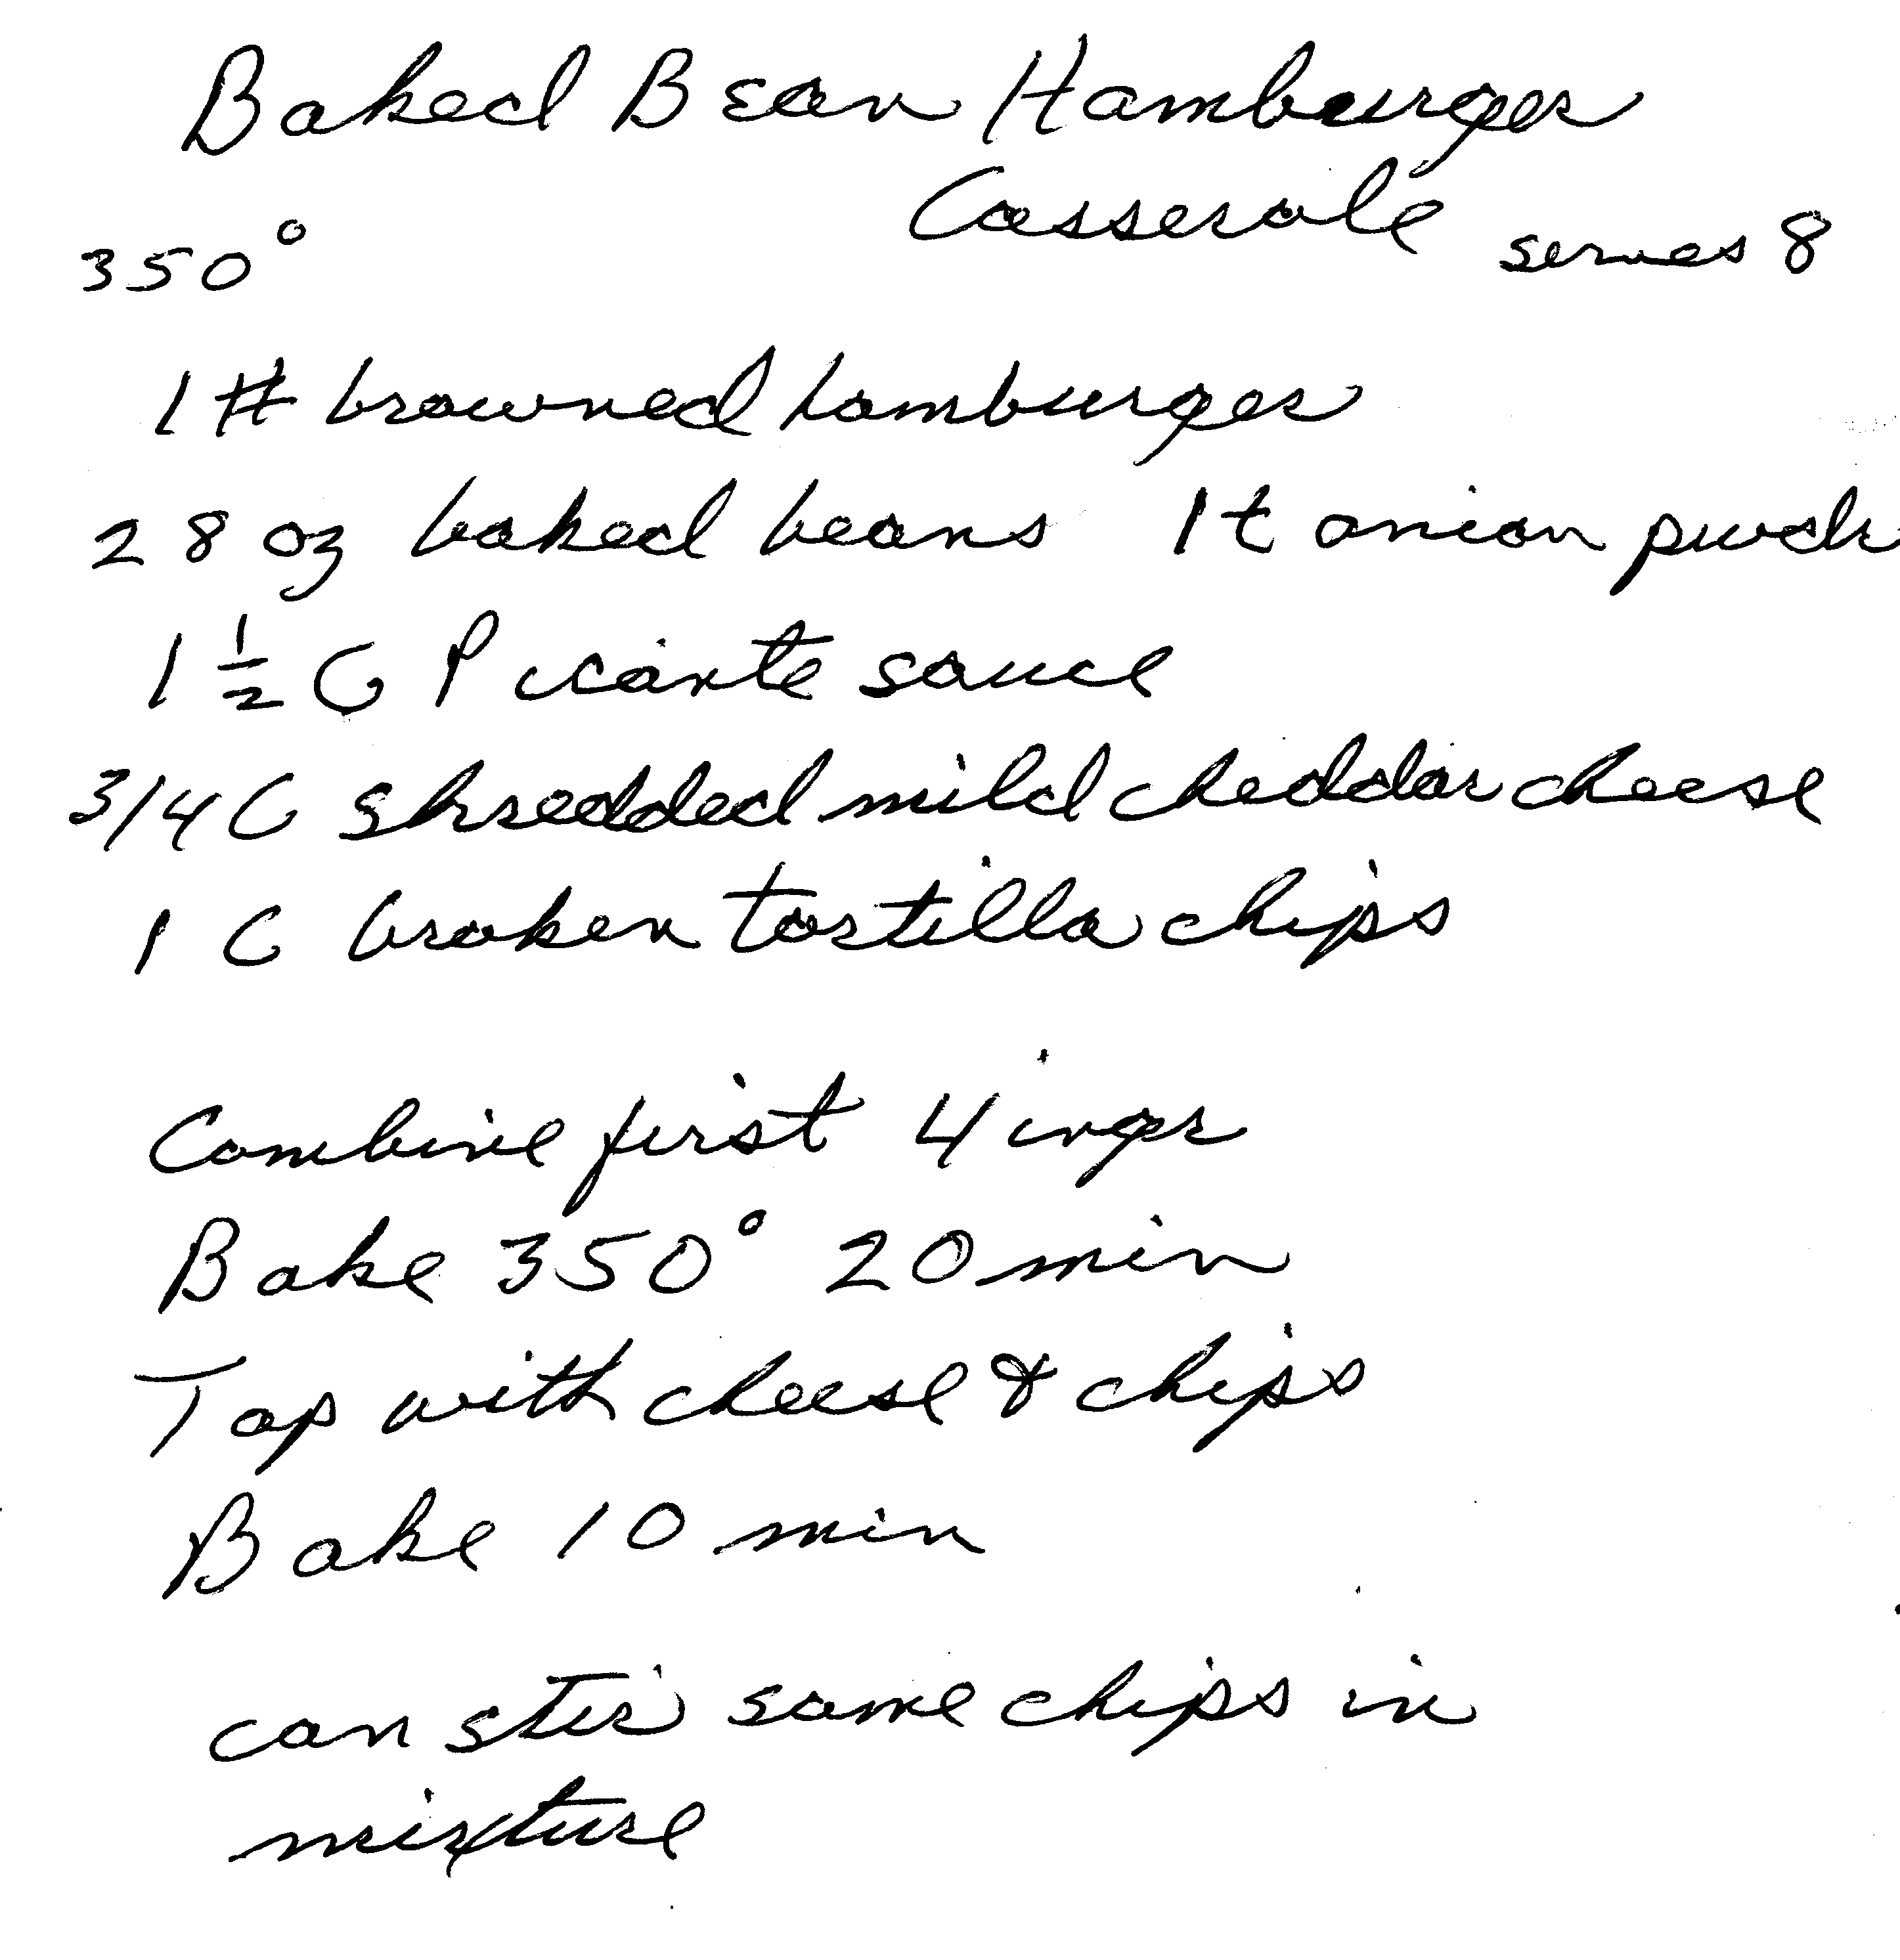 Baked Bean Hamburger
Casserole serves 8
350°
1 # browned hamburger
28 oz baked beans 1 t onion pwdr
1 ½ C Picante sauce
3/4 C shredded mild cheddar cheese
1 C broken tortilla chips
Combine first 4 ingr
Bake 350° 20 min
Top with cheese & chips
Bake 10 min
can stir some chips in
mixture